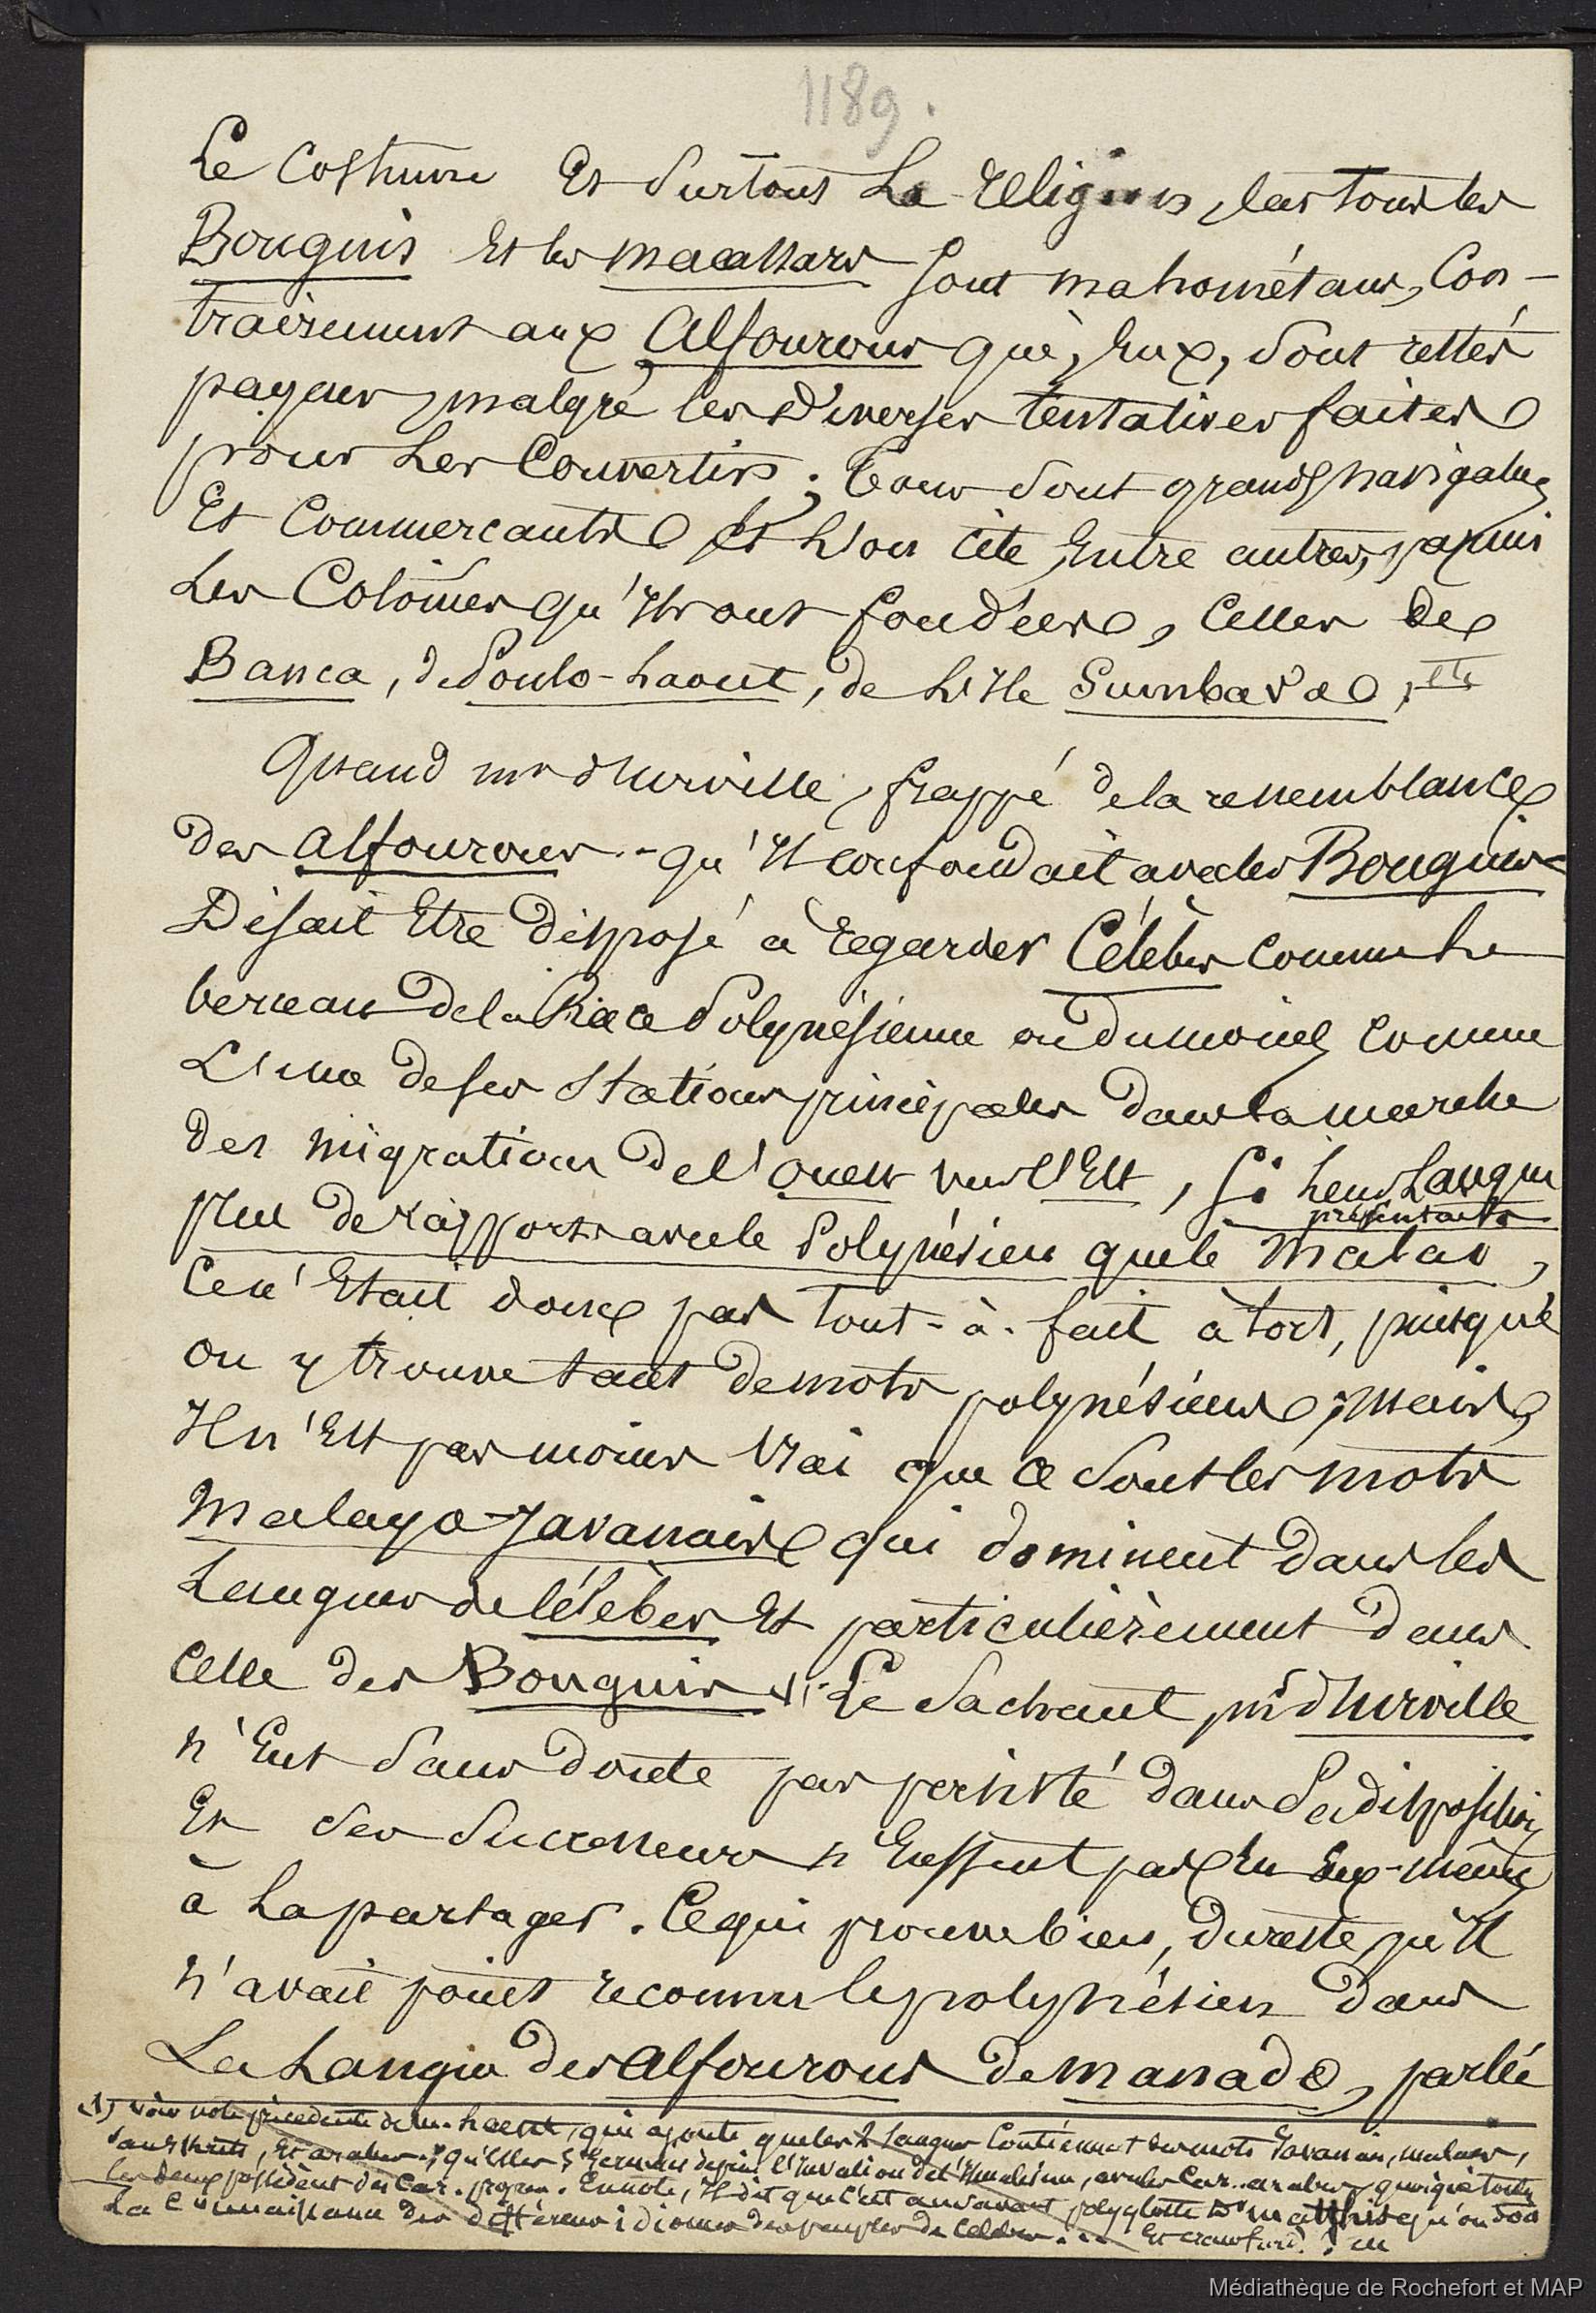 1189.
Le Costume Et Surtout La religion, car tous les
Bouguis Et les macassars sont mahométans, Con-
trairement aux Alfourous qui, Eux, Sont restés
payens, malgré les diverses tentatives faites
pour Les Convertir ; tous sont grands navigateurs
Et Commercants Et L'on cite Entre autres, parmi
Les Colonies qu'ils ont fondées, Celles de
Banca, de Poulo-Laout, de L'Ile Sumbava, etc
Quand mr d'Urville, frappé de la ressemblance
des alfourous - qu'Il confondait avec les Bouguis -
Disait Etre disposé à regarder Célèbes comme Le
berceau de la Race Polynésienne ou du moins comme
L'une de ses Stations principales dans la marche
des migrations de l'ouest vers l'Est, si leur Langue
présentait
plus de rapports avec le Polynésien que le Malai,
Ce n'Etait donc pas tout-à-fait à tort, puisque
on y trouve tant de mots polynésiens ; mais
Il n'Est pas moins Vrai que ce sont les mots
Malayo-Javanais qui dominent dans les
Langues de Célèbes Et particulièrement dans
celle des Bouguis (1). Le Sachant, mr d'Urville
n'Eut Sans doute pas persisté dans Sa disposition
Et Ses Successeurs n'Eussent pas Eu Eux-mêmes
à La partager. Ce qui prouve bien, du reste, qu'Il
n'avait point reconnu le polynésien dans
La Langue des Alfourous de Manado, parlée
(1) voir note précédente de m. , qui ajoute que les 2 Langues Contiennent des mots Javanais, malais,
sanskrits, Et arabes ; qu'Elles S'Ecrivent depuis l'Invasion de l'Islamisme, avec les Car. arabes, quoique toutes
les deux possèdent des Car. propres. En note, Il dit que c'est au savant polyglotte Dr Matthes qu'on doit
La Connaissance des différens idiomes des peuples de Celebes . . . Et Crawfurd.